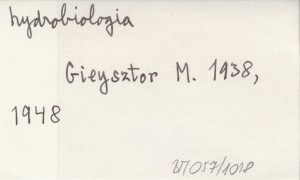 hydrobiologia
Gieysztor M. 1938,
1948
057/1018